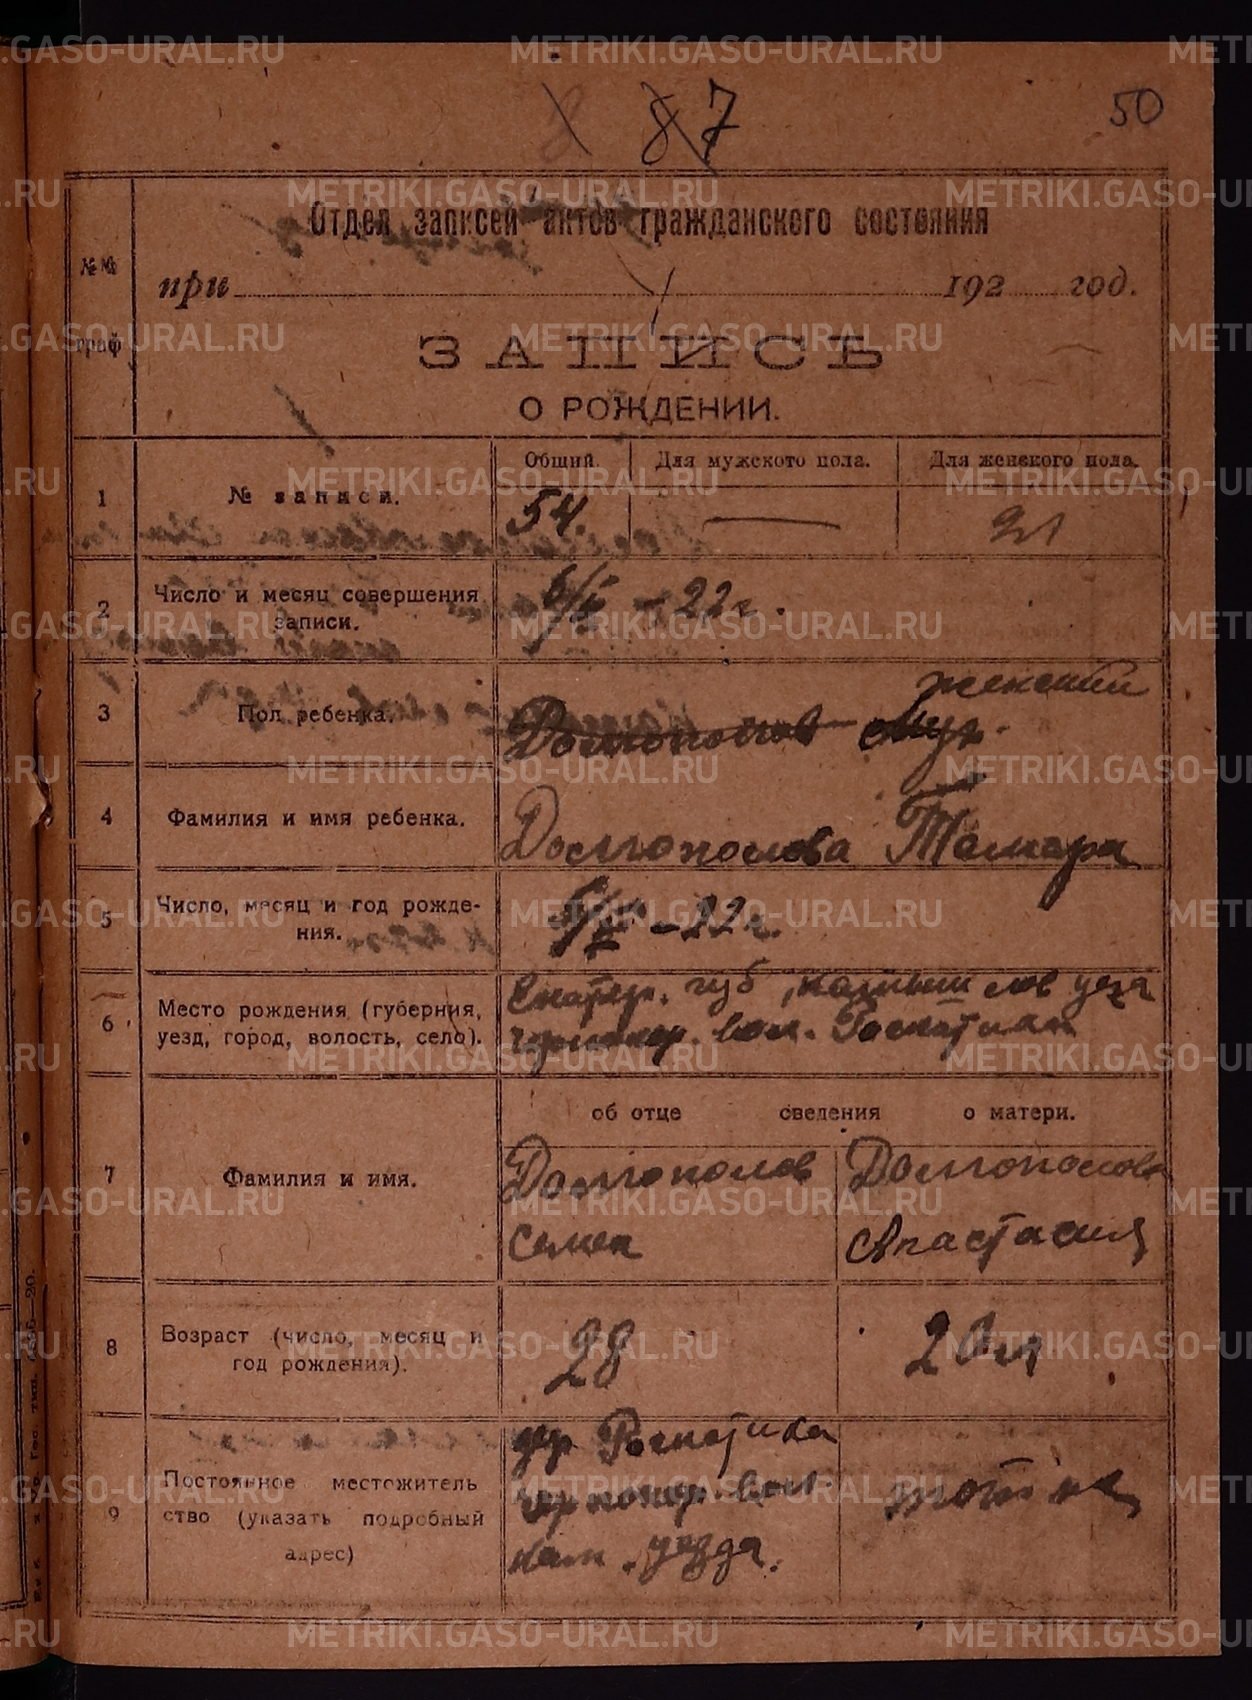 87
50
Отдел записей актов гражданского состояния
№№ граф
при 192 год.
ЗАПИСЬ
О РОЖДЕНИИ.
Общий. Для мужского пола. Для женского пола.
1 № записи. 54. —
2 Число и месяц совершения записи. -22 г.
3 Пол ребенка. женский
Долгополов муж.
4 Фамилия и имя ребенка. Долгополова Тамара
5 Число, месяц и год рождения. -22 г.
6 Место рождения (губерния, уезд, город, волость, село). Екатер. губ, камышловуезд
вол.
об отце сведения о матери.
7 Фамилия и имя. Долгополов Долгополова
Семен Анастасия
8 Возраст (число, месяц и год рождения). 28 20 л
9 Постоянное местожительство (указать подробный адрес) дер
вол. тот же
кам. уезда.
METRIKI.GASO-URAL.RU